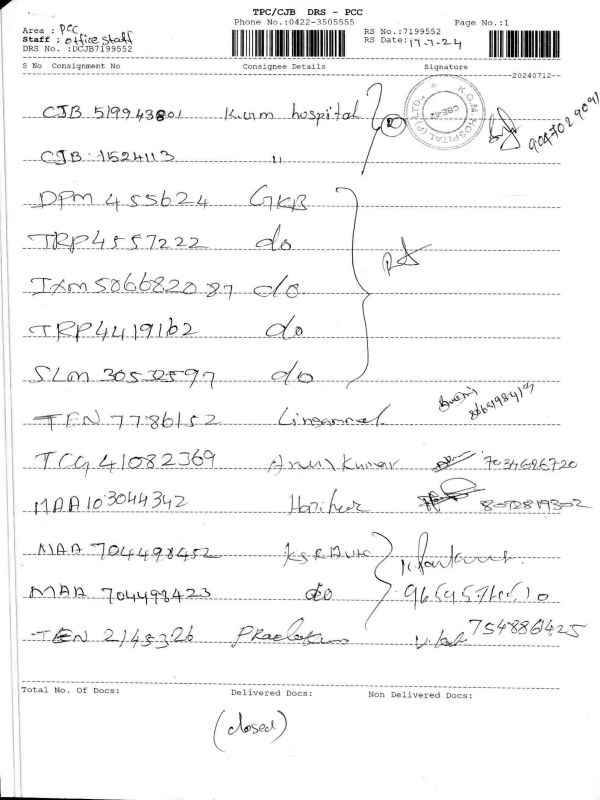 TPC/CJB DRS - PCC
Phone No.:0422-3505555 Page No.:1
Area : PCC
Staff : office staff
DRS No. :DCJB7199552
RS No.:7199552
RS Date:17-7-24
S No Consignment No Consignee Details Signature
--20240712--
CJB 519943801 K.G.M hospital
K.G.N. HOSPITAL (P) LTD., CBE-62
9047029091
CJB 1524113 11
DPM 455624 GKB
TRP 4557222 do
IXM 506682087 do
TRP 4419162 do
SLM 30532597 do
TEN 7786152
TCG 41082369 Arun Kumar 7034686720
MAA 103044342 Harihar 8072819302
MAA 704498452 KSR Auto
MAA 704498423 do
TEN 2145326 7548861425
Total No. Of Docs: Delivered Docs: Non Delivered Docs:
(closed)